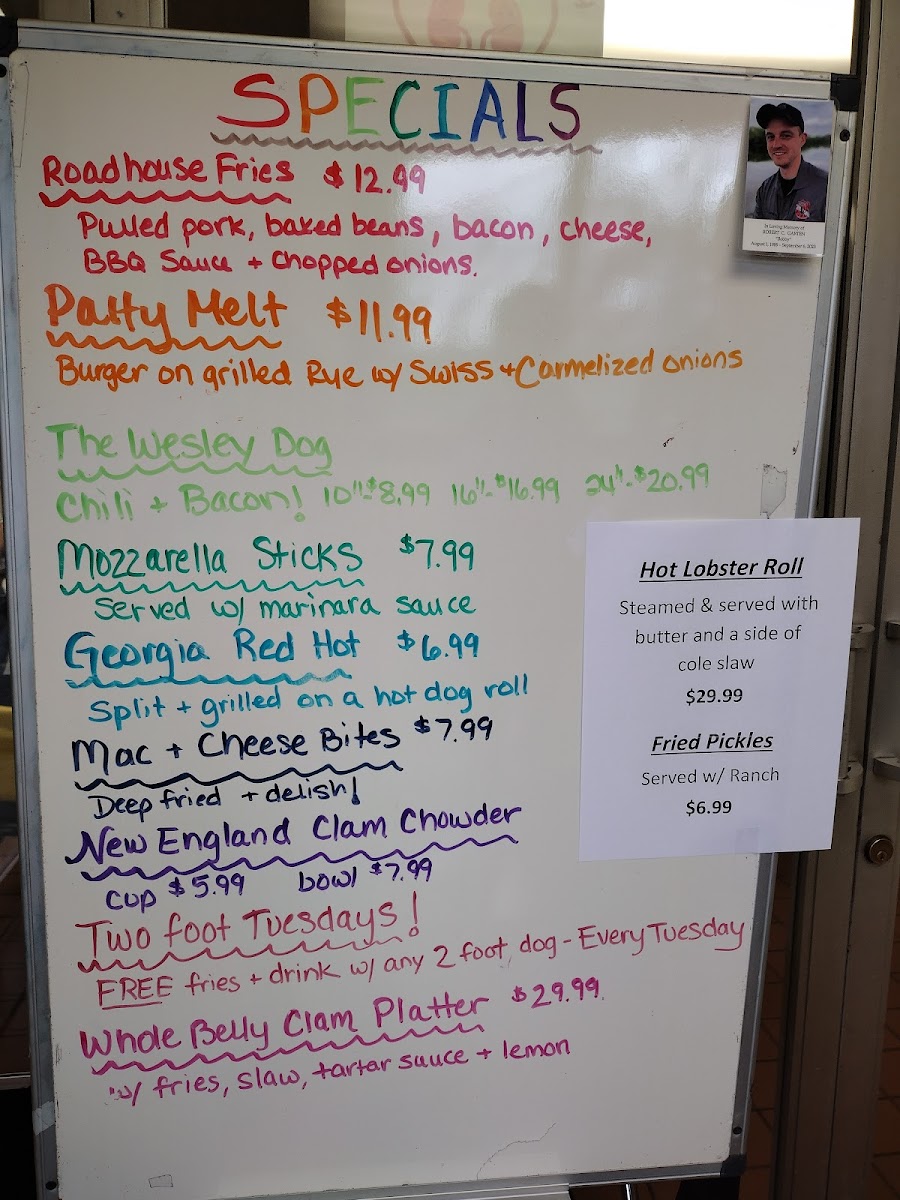 SPECIALS
Roadhouse Fries $12.99
Pulled pork, baked beans, bacon, cheese,
BBQ Sauce + Chopped onions.
Patty Melt $11.99
Burger on grilled Rye w/ Swiss + Carmelized onions
The Wesley Dog
Chili + Bacon! 10"-$8.99 16"-$16.99 24"-$20.99
Mozzarella Sticks $7.99
Served w/ marinara sauce
Georgia Red Hot $6.99
Split + grilled on a hot dog roll
Mac + Cheese Bites $7.99
Deep fried + delish!
New England Clam Chowder
cup $5.99 bowl $7.99
Two foot Tuesdays!
FREE fries + drink w/ any 2 foot dog - Every Tuesday
Whole Belly Clam Platter $29.99
w/ fries, slaw, tartar sauce + lemon
In Loving Memory of
Hot Lobster Roll
Steamed & served with
butter and a side of
cole slaw
$29.99
Fried Pickles
Served w/ Ranch
$6.99